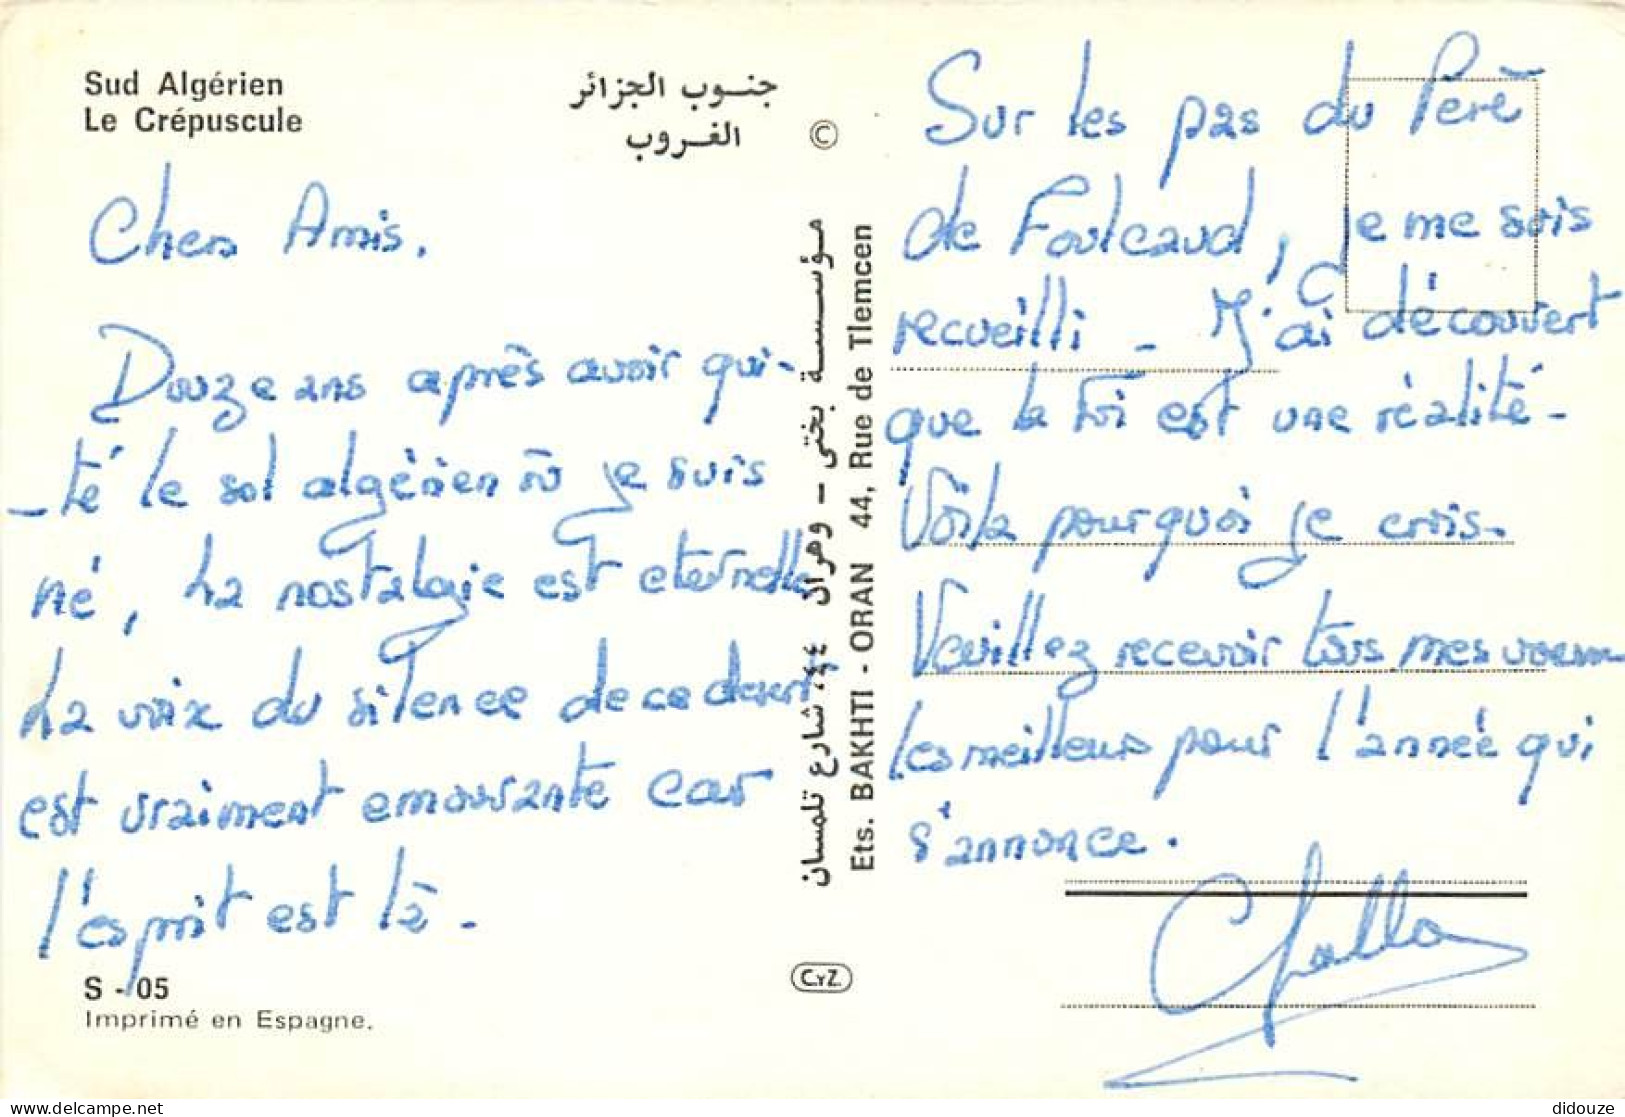 Sud Algérien
Le Crépuscule
جنوب الجزائر
الغروب
Chers Amis.
Douze ans après avoir qui-
-té le sol algérien où je suis
né, La nostalgie est eternelle
La voix du silence de ce desert
est vraiment emouvante car
l'esprit est là -
S - 05
Imprimé en Espagne.
©
مؤسسة بختي - وهران ٤٤، شارع تلمسان
Ets. BAKHTI - ORAN 44, Rue de Tlemcen
CYZ
Sur les pas du Père
de Foulcaud, je me suis
recueilli - J'ai découvert
que la Foi est une réalité -
Voila pourquoi je crois.
Veuillez recevoir tous mes voeux
les meilleurs pour l'année qui
s'annonce.
delcampe.net
didouze